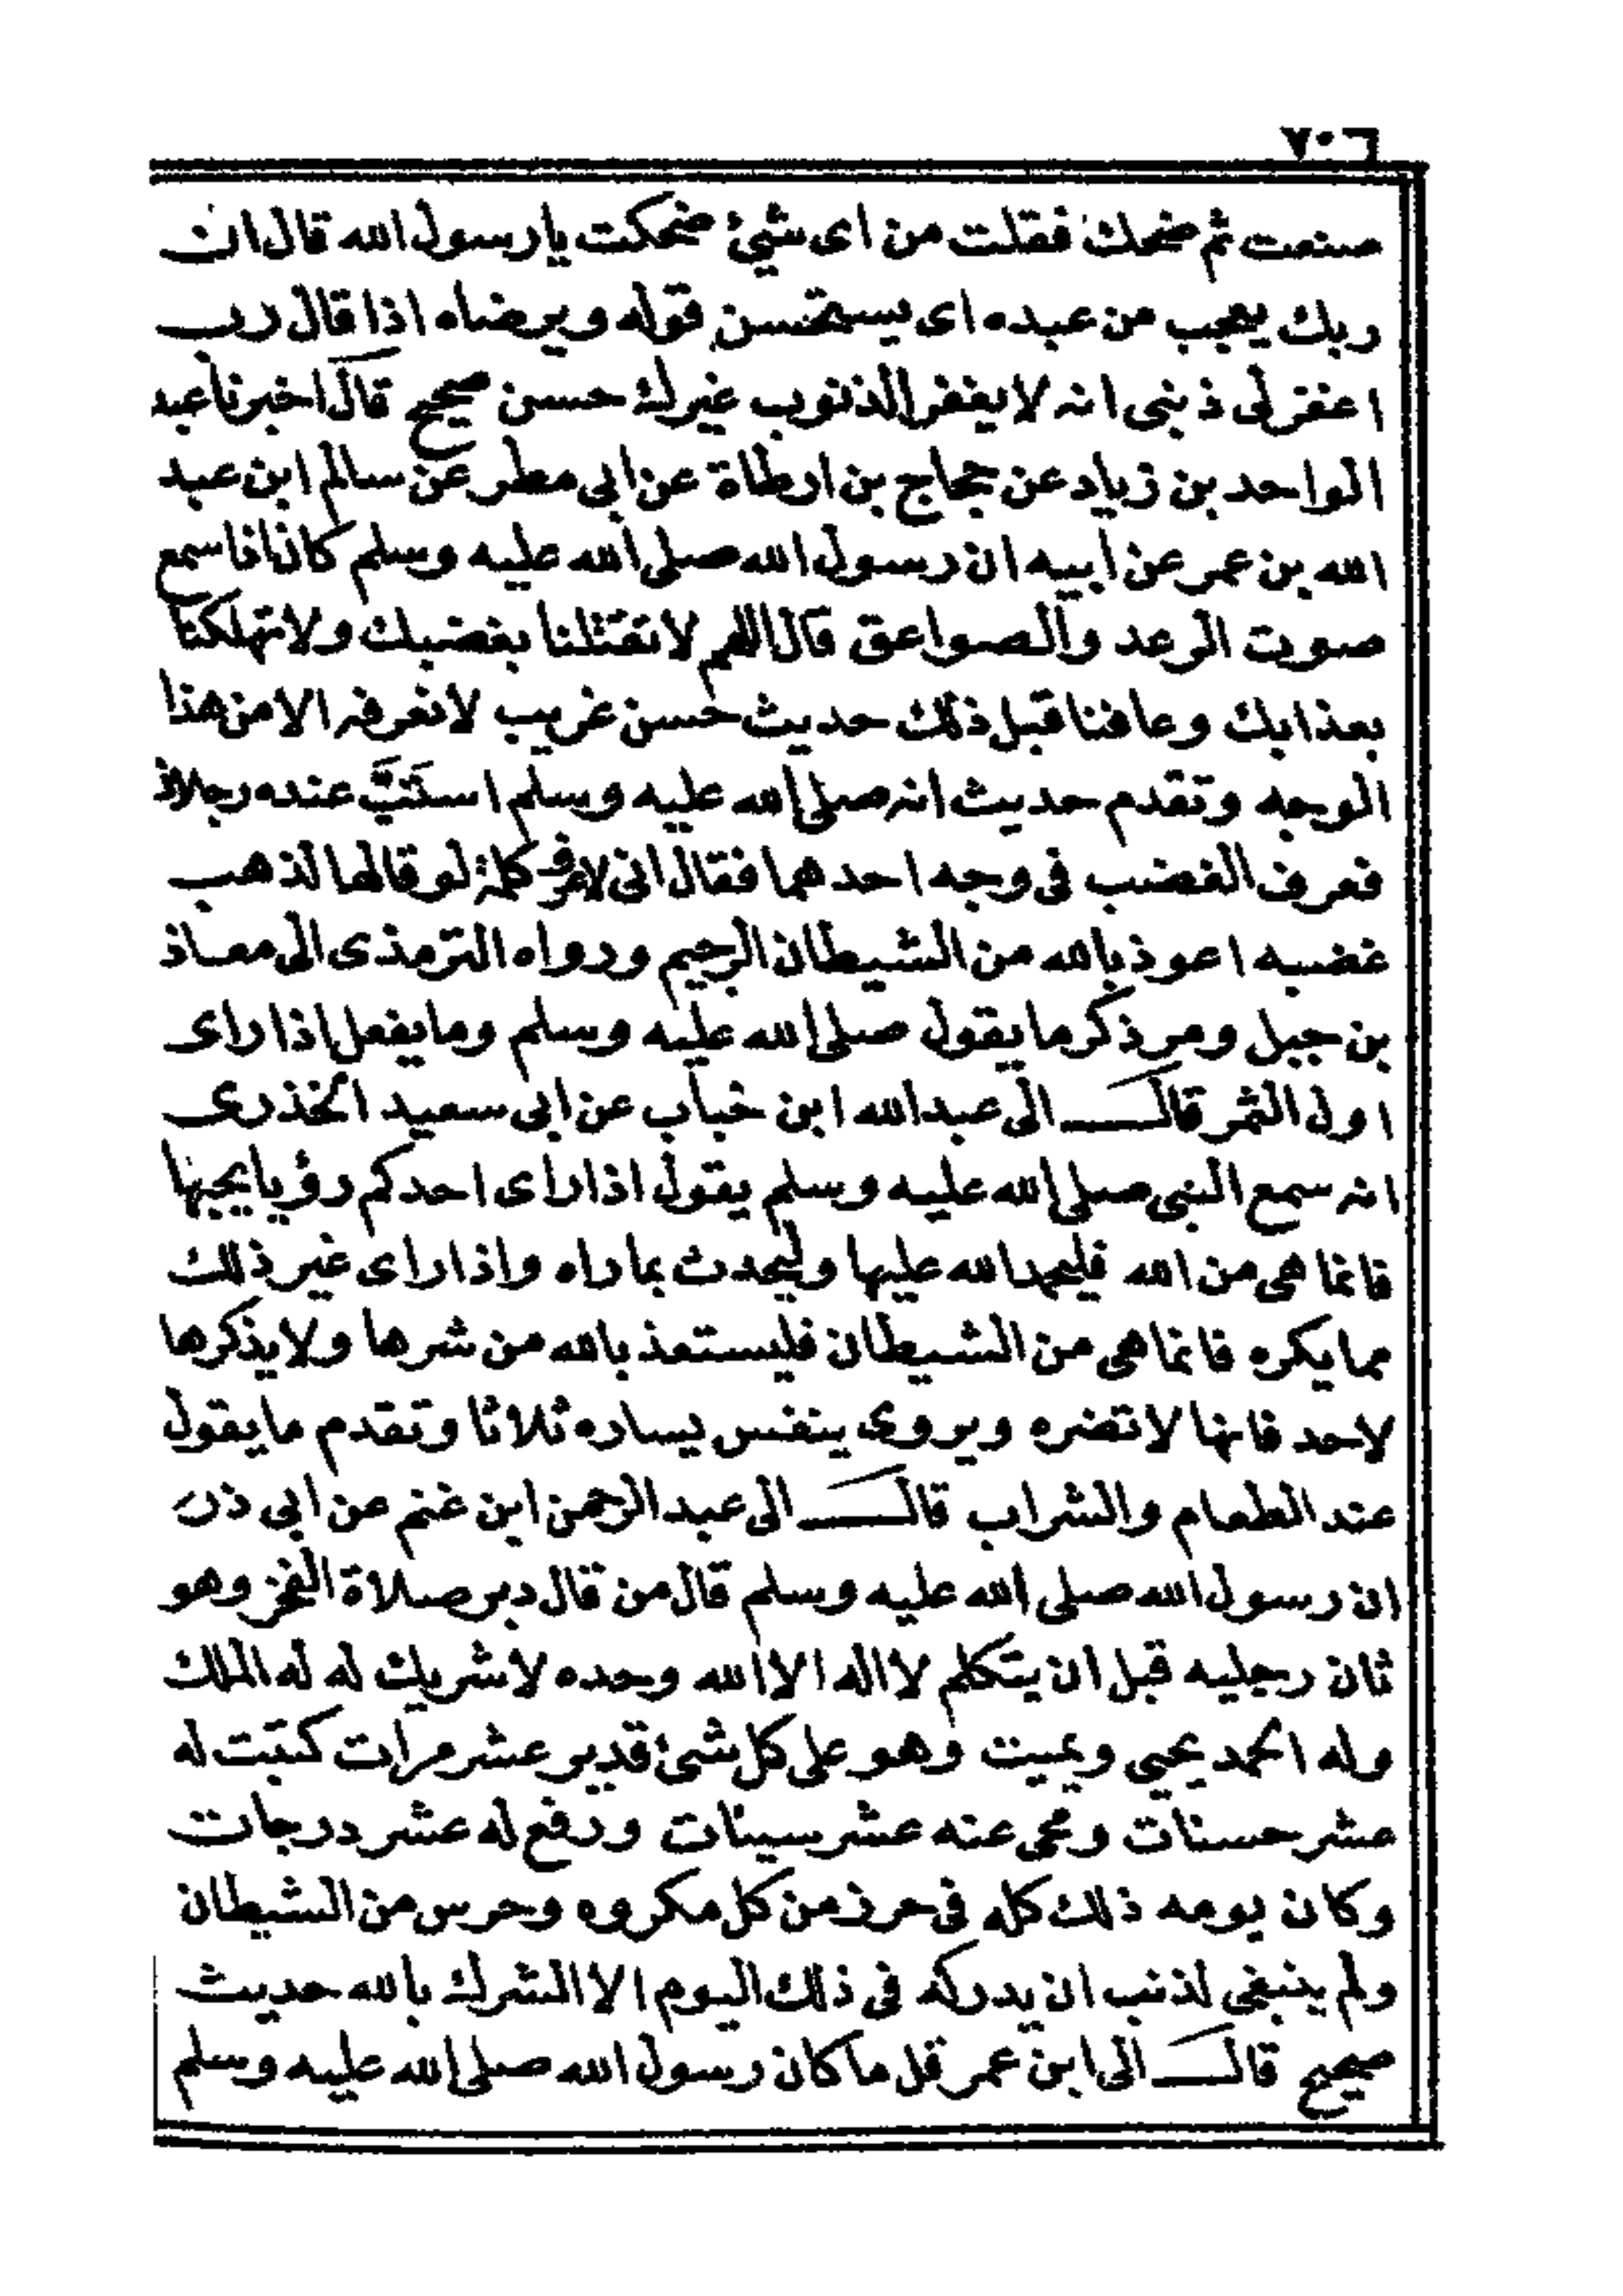 ٧٠٦
صنعت ثم ضحك فقلت من اى شيئ ضحكت يارسول الله قال ان
ربك يعجب من عبده اى يستحسن قوله ويرضاه اذا قال رب
اغفر لى ذنبى انه لا يغفر الذنوب غيرك حسن صحيح قال اخبرنا عبد
الواحد بن زياد عن حجاج بن ارطاة عن ابى مطر عن سالم ابن عبد
الله بن عمر عن ابيه ان رسول الله صلى الله عليه وسلم كان اذا سمع
صوت الرعد والصواعق قال اللهم لا تقتلنا بغضبك ولا تهلكنا
بعذابك وعافنا قبل ذلك حديث حسن غريب لا نعرفه الا من هذا
الوجه وتقدم حديث انه صلى الله عليه وسلم استَبَّ عنده رجلان
فعرف الغضب فى وجه احدهما فقال انى لاعرف كلمة لو قالها لذهب
غضبه اعوذ بالله من الشيطان الرجيم ورواه الترمذى الى معاذ
بن جبل ومر ذكر ما يقول صلى الله عليه وسلم وما يفعل اذا راى
اول الثمر قال الى عبد الله ابن خباب عن ابى سعيد الخذرى
انه سمع النبى صلى الله عليه وسلم يقول اذا راى احدكم رؤيا يحبها
فانما هى من الله فليحمد الله عليها وليحدث بما راه واذا راى غير ذلك
مما يكره فانما هى من الشيطان فليستعذ بالله من شرها ولا يذكرها
لاحد فانها لا تضره ويروى ينفس يساره ثلاثا وتقدم ما يقول
عند الطعام والشراب قال الى عبد الرحمن ابن غنم عن ابى ذر
ان رسول الله صلى الله عليه وسلم قال من قال دبر صلاة الفجر وهو
ثان رجليه قبل ان يتكلم لا اله الا الله وحده لا شريك له له الملك
وله الحمد يحيى ويميت وهو على كل شئ قدير عشر مرات كتبت له
عشر حسنات ومحى عنه عشر سيئات ورفع له عشر درجات
وكان يومه ذلك كله فى حرز من كل مكروه وحرس من الشيطان
ولم ينبغى لذنب ان يدركه فى ذلك اليوم الا الشرك بالله حديث
صحيح قال الى ابن عمر قل ما كان رسول الله صلى الله عليه وسلم